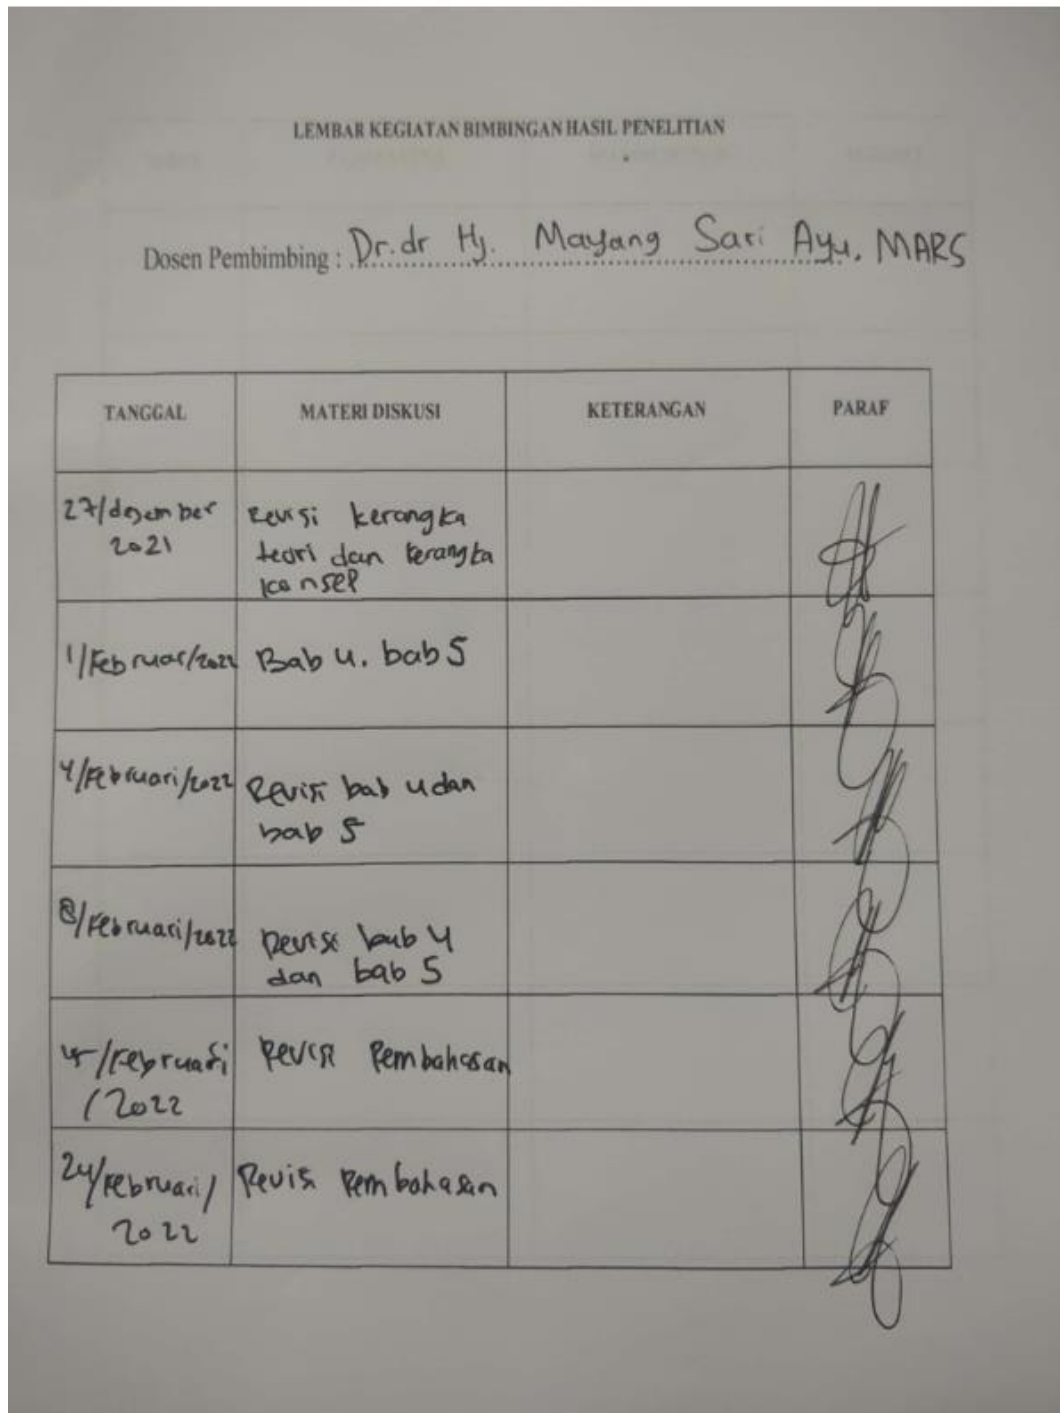 LEMBAR KEGIATAN BIMBINGAN HASIL PENELITIAN
Dosen Pembimbing : Dr.dr Hj. Mayang Sari Ayu, MARS
TANGGAL MATERI DISKUSI KETERANGAN PARAF
27/desember Revisi kerangka
2021 teori dan kerangka
konsep
1/Februar/2022 Bab 4. bab 5
4/Februari/2022 Revisi bab 4 dan
bab 5
8/Februari/2022 Revisi bab 4
dan bab 5
/Februari Revisi Pembahasan
/2022
24/Februari/ Revisi Pembahasan
2022